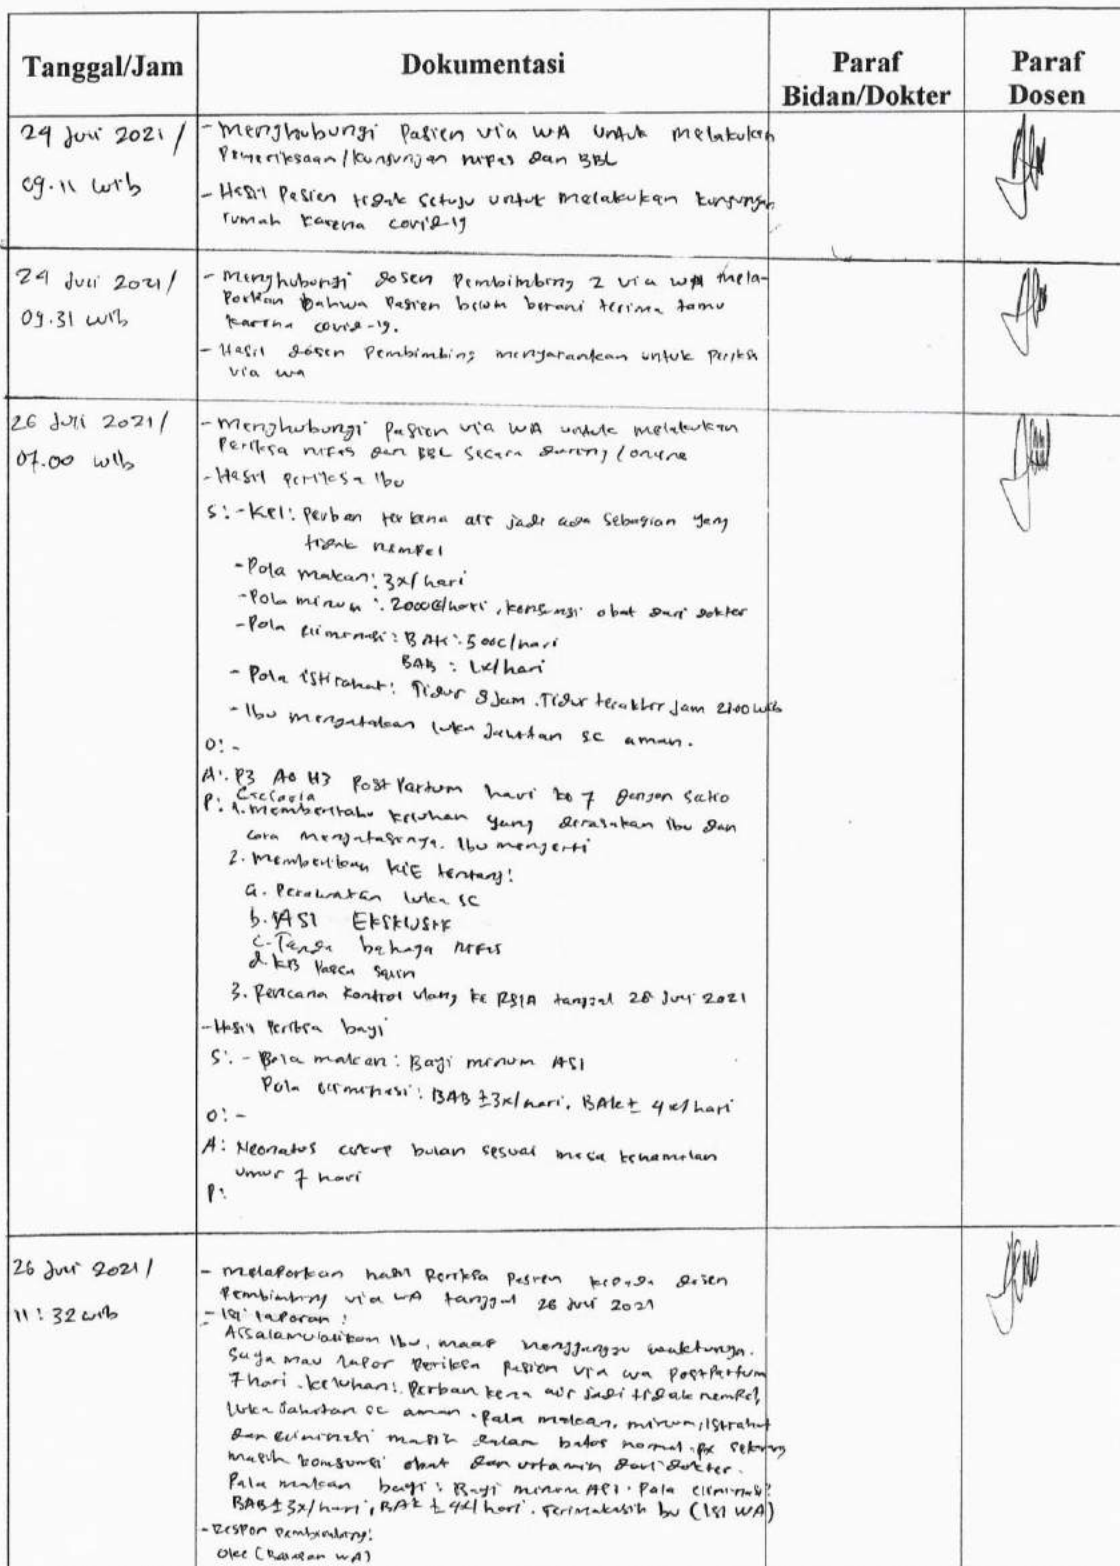 Tanggal/Jam
Dokumentasi
Paraf
Bidan/Dokter
Paraf
Dosen
24 Juli 2021 /
09.11 wib
- Menghubungi Pasien via WA untuk melakukan
Pemeriksaan/kunjungan nifas dan BBL
- Hasil Pasien tidak setuju untuk melakukan kunjungan
rumah karena covid-19
24 Juli 2021 /
09.31 wib
- Menghubungi dosen Pembimbing 2 via WA mela-
Porkan bahwa Pasien belum berani terima tamu
karena covid-19.
- Hasil dosen Pembimbing menyarankan untuk Periksa
via wa
26 Juli 2021 /
07.00 wib
- Menghubungi pasien via WA untuk melakukan
Periksa nifas dan BBL secara daring / online
- Hasil periksa Ibu
S: - Kel: Perban terkena air jadi ada sebagian yang
tidak nempel
- Pola makan: 3x/hari
- Pola minum : 2000cc/hari, konsumsi obat dari dokter
- Pola eliminasi: BAK : 500c/hari
BAB : 1x/hari
- Pola istirahat: Tidur 8 Jam. Tidur terakhir Jam 21.00 wib
- Ibu mengatakan luka Jahitan sc aman.
O: -
A: P3 A0 H3 Post Partum hari ke 7 dengan Sectio
Caesaria
P: 1. Memberitahu keluhan yang dirasakan Ibu dan
cara mengatasinya. Ibu mengerti
2. Memberikan KIE tentang:
a. Perawatan luka SC
b. ASI EKSKLUSIF
c. Tanda bahaya nifas
d. KB Pasca Salin
3. Rencana kontrol ulang ke RSIA tanggal 28 Juli 2021
- Hasil Periksa bayi
S: - Pola makan: Bayi minum ASI
Pola eliminasi: BAB ±3x/hari, BAK ± 4x/hari
O: -
A: Neonatus cukup bulan sesuai masa kehamilan
umur 7 hari
P:
26 Juli 2021 /
11:32 wib
- melaporkan hasil Periksa Pasien kepada dosen
Pembimbing via WA tanggal 26 Juli 2021
- Isi laporan :
Assalamulaikum Ibu, maaf menggangu waktunya.
Saya mau lapor Periksa pasien via wa PostPartum
7 hari. keluhan: Perban kena air jadi tidak nempel,
luka Jahitan sc aman. Pola makan, minum, istirahat
dan eliminasi masih dalam batas normal. px sekarang
masih konsumsi obat dan vitamin dari dokter.
Pola makan bayi: Bayi minum ASI. Pola eliminasi:
BAB ±3x/hari, BAK ± 4x/hari. Terimakasih bu (Isi WA)
- Respon Pembimbing:
Oke (Balasan WA)